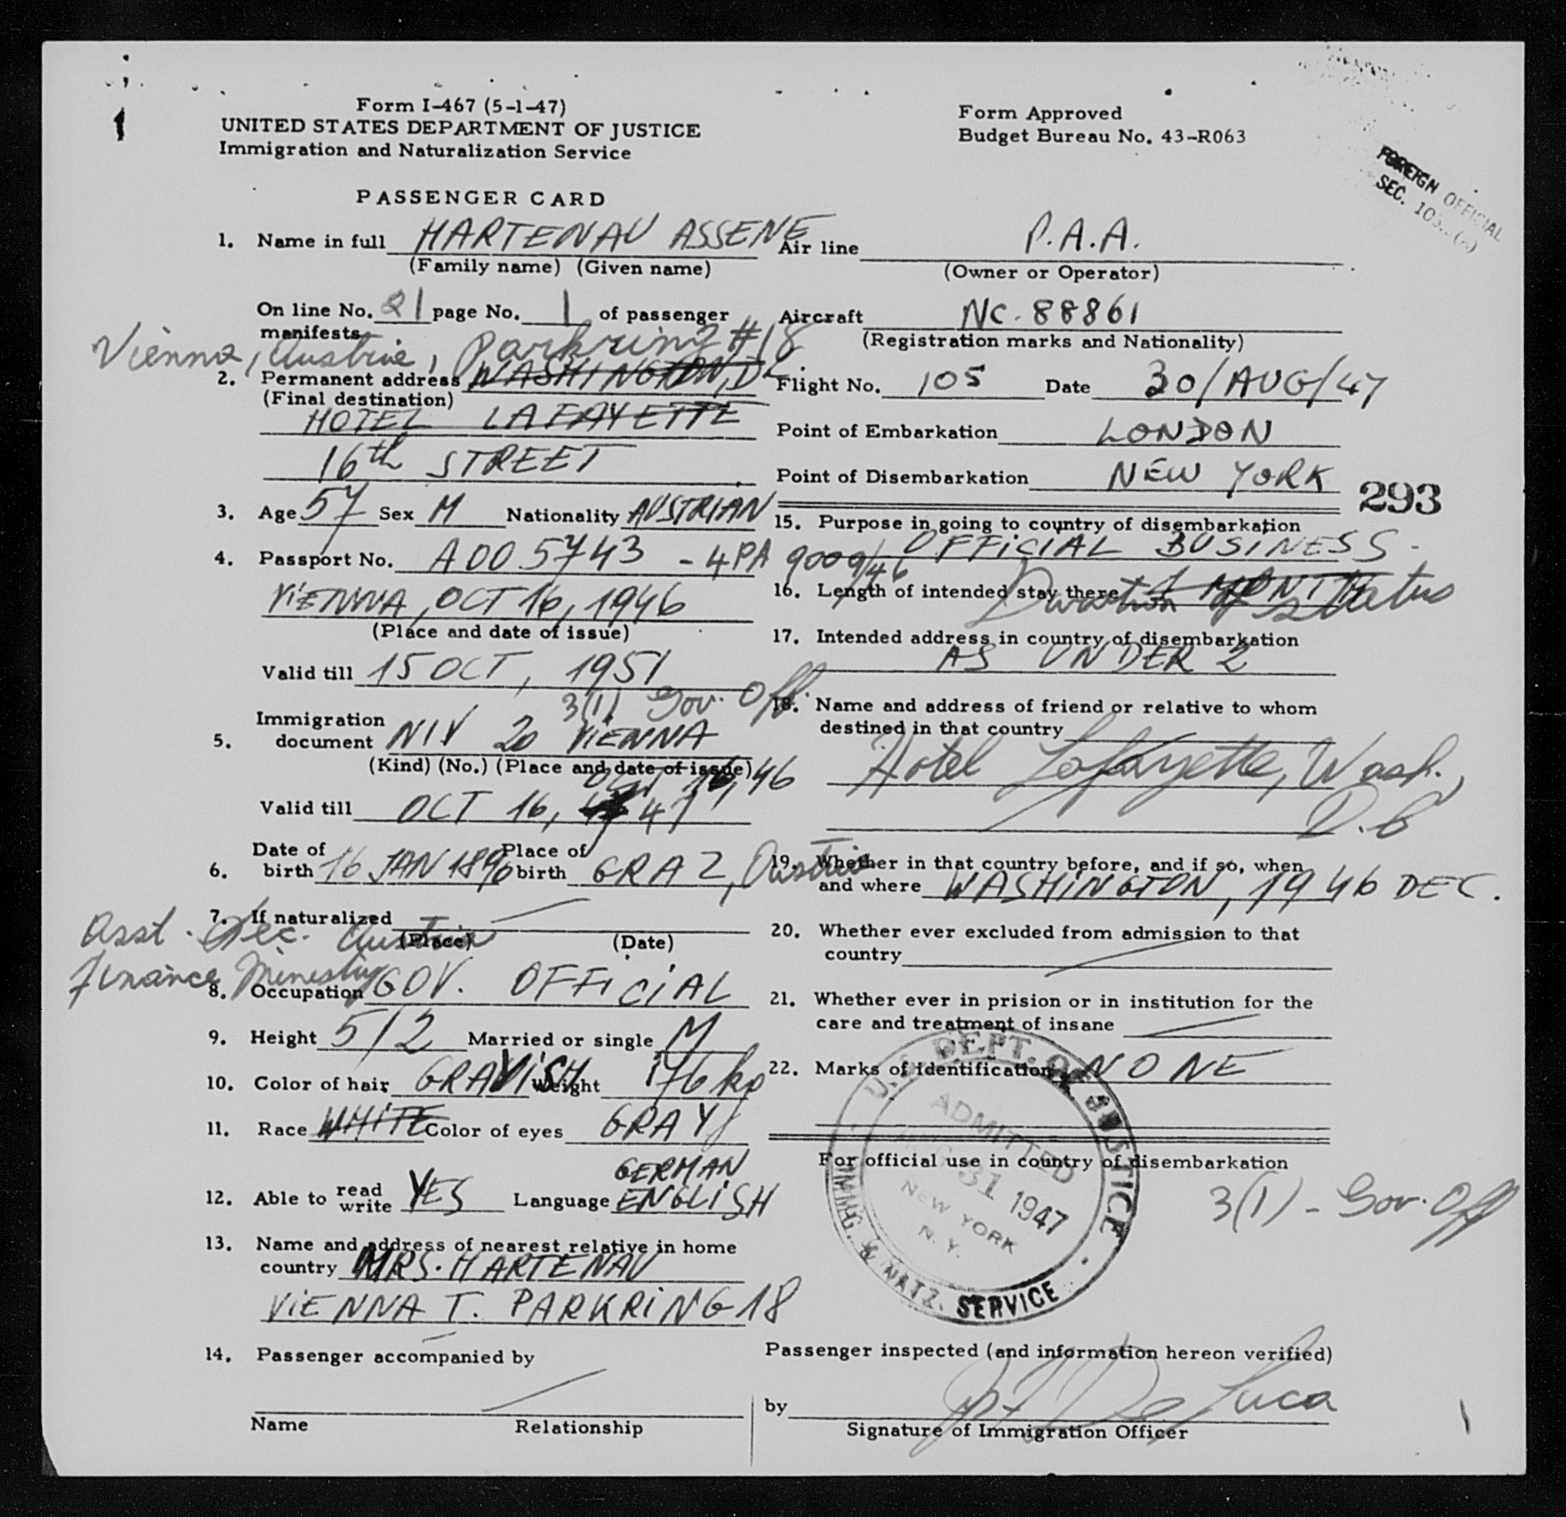 1
Form I-467 (5-1-47)
UNITED STATES DEPARTMENT OF JUSTICE
Immigration and Naturalization Service
Form Approved
Budget Bureau No. 43-R063
FOREIGN OFFICIAL
SEC.
PASSENGER CARD
1. Name in full HARTENAU ASSENE
(Family name) (Given name)
On line No. 21 page No. 1 of passenger
manifests
Vienna, Austria, Parkring #18
2. Permanent address WASHINGTON, DC
(Final destination)
HOTEL LAFAYETTE
16th STREET
3. Age 57 Sex M Nationality AUSTRIAN
4. Passport No. A005743 - 4PA 9009/46
VIENNA, OCT 16, 1946
(Place and date of issue)
Valid till 15 OCT, 1951
3(1) Gov. Off.
5. Immigration
document NIV 20 VIENNA
(Kind) (No.) (Place and date of issue)
OCT 16, 46
Valid till OCT 16, 47
6. Date of birth 16 JAN 1890 Place of birth GRAZ, Austria
7. If naturalized
(Place) (Date)
Asst. Sec. Austria
Finance Ministry
8. Occupation GOV. OFFICIAL
9. Height 5/2 Married or single M
10. Color of hair GRAYISH Weight 176 kp
11. Race WHITE Color of eyes GRAY
12. Able to read write YES Language GERMAN
ENGLISH
13. Name and address of nearest relative in home
country MRS. HARTENAU
VIENNA I. PARKRING 18
14. Passenger accompanied by
Name Relationship
Air line P.A.A.
(Owner or Operator)
Aircraft NC-88861
(Registration marks and Nationality)
Flight No. 105 Date 30/AUG/47
Point of Embarkation LONDON
Point of Disembarkation NEW YORK
293
15. Purpose in going to country of disembarkation
OFFICIAL BUSINESS
16. Length of intended stay there 1 MONTH
Duration of status
17. Intended address in country of disembarkation
AS UNDER 2
18. Name and address of friend or relative to whom
destined in that country
Hotel Lafayette, Wash.,
D.C
19. Whether in that country before, and if so, when
and where WASHINGTON, 1946 DEC.
20. Whether ever excluded from admission to that
country
21. Whether ever in prision or in institution for the
care and treatment of insane
22. Marks of identification NONE
For official use in country of disembarkation
3(1) - Gov. Off
U.S. DEPT. OF JUSTICE
ADMITTED
31 1947
NEW YORK
N.Y.
IMMG. & NATZ. SERVICE
Passenger inspected (and information hereon verified)
by De Luca
Signature of Immigration Officer